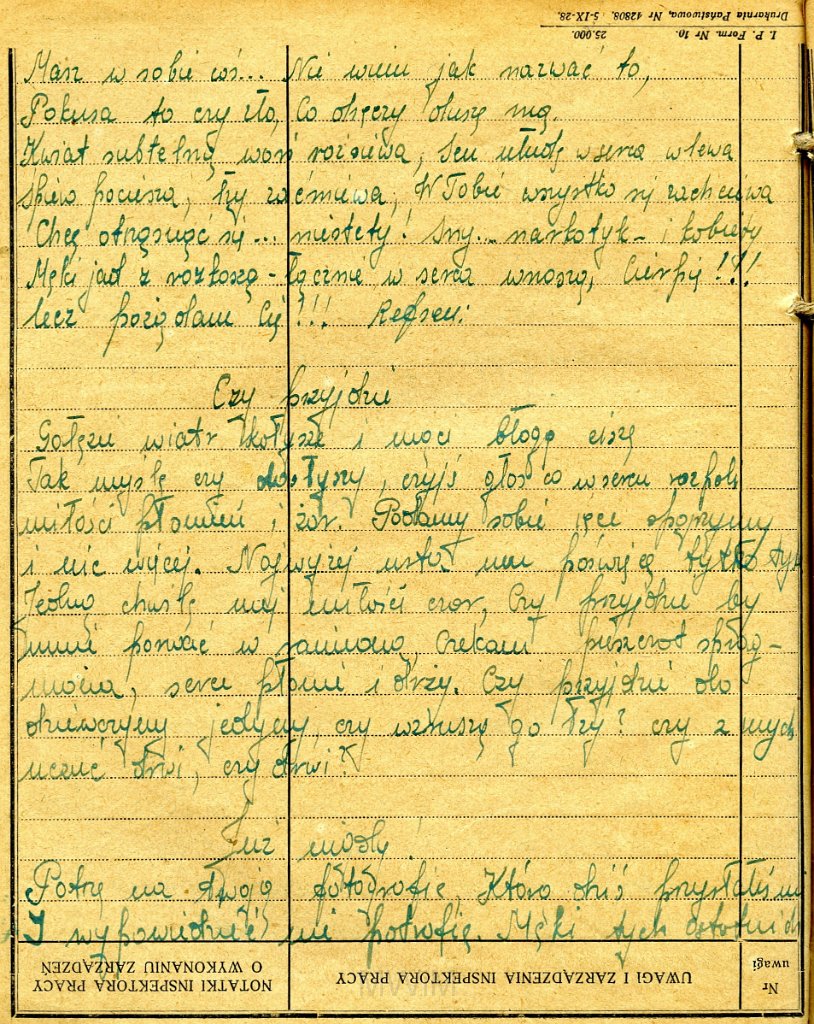 I. P. Form. Nr 10. 25.000.
Drukarnia Państwowa, Nr 42808. 5-IX-28.
Masz w sobie coś... Nie wiem jak nazwać to,
Pokusa to czy zło, Co dręczy duszę mą.
Kwiat subtelną woń rozsiewa, Sen ułudę w serca wlewa
śpiew pociesza, łzy zaćmiewa, W Tobie wszystko się zachciewa
Chcę otrząsnąć się... niestety! Sny... narkotyk - i kobiety
Męki jad z rozkoszą - łącznie w serca wnoszą, Cierpię!!!
lecz pożądam Cię!!! Refren:
Czy przyjdzie
Gałęzie wiatr kołysze i mąci błogą ciszę
Tak myślę czy dosłyszy, czyjś głos co w sercu rozpala
miłości płomień i żar. Podamy sobie ręce spojrzymy
i nic więcej. Najwyżej usta me poświęcę tylko tę
Jedną chwilę mej miłości czar, Czy przyjdzie by
mnie porwać w ramiona, Czekam pieszczot sprag-
niona, serce płonie i drży. Czy przyjdzie do
dziewczyny jedynej, czy wzruszą go łzy? czy z mych
uczuć drwi, czy drwi?
Już nigdy!
Patrzę na twoją fotografię, Którą dziś przysłałeś mi
I wypowiedzieć nie potrafię. Męki tych ostatnich
NOTATKI INSPEKTORA PRACY O WYKONANIU ZARZĄDZEŃ
UWAGI I ZARZĄDZENIA INSPEKTORA PRACY
Nr uwagi